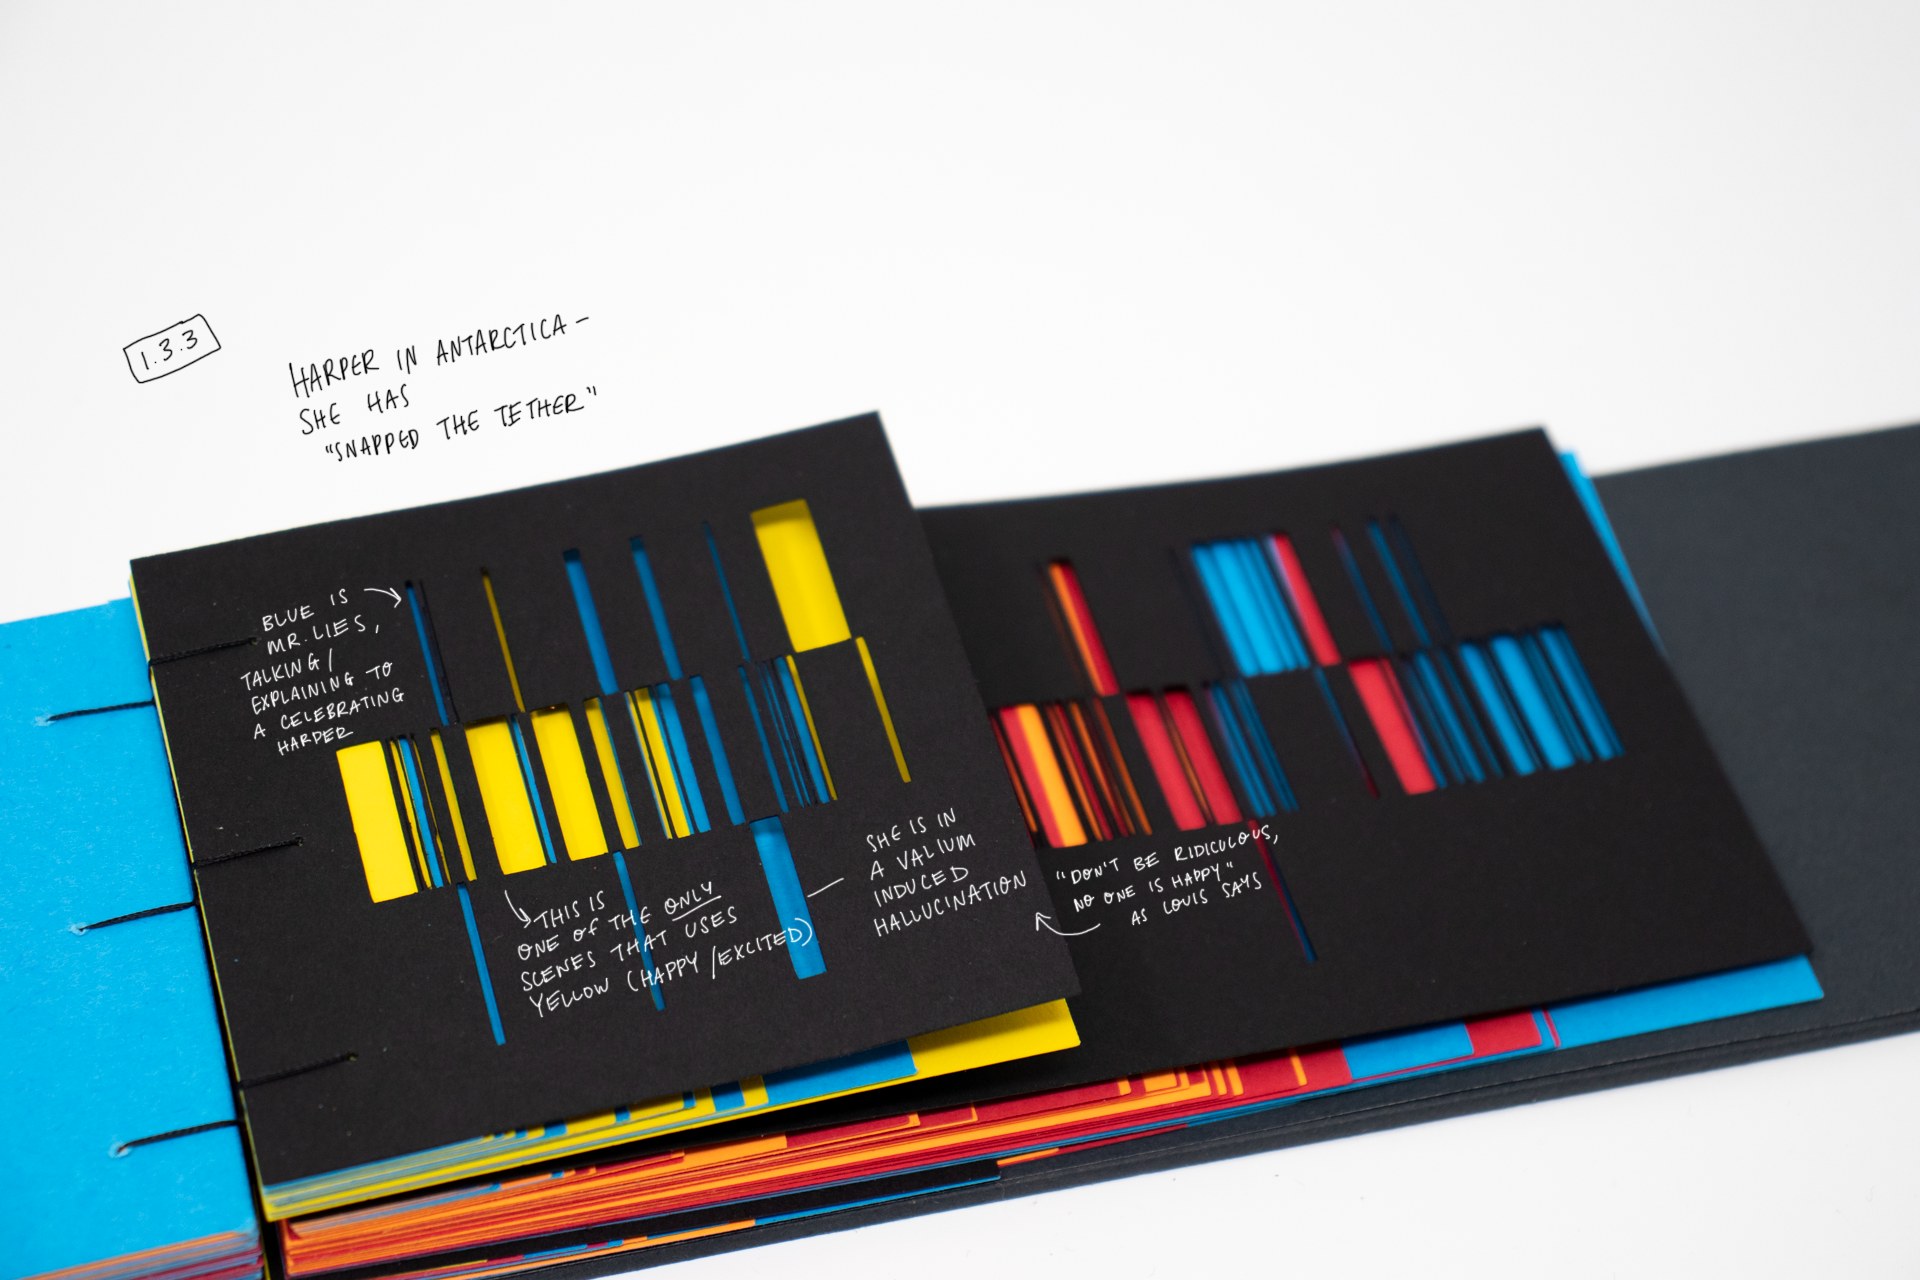 1.3.3
HARPER IN ANTARCTICA –
SHE HAS
"SNAPPED THE TETHER"
BLUE IS
MR. LIES,
TALKING/
EXPLAINING TO
A CELEBRATING
HARPER
THIS IS
ONE OF THE ONLY
SCENES THAT USES
YELLOW (HAPPY/EXCITED)
SHE IS IN
A VALIUM
INDUCED
HALLUCINATION
"DON'T BE RIDICULOUS,
NO ONE IS HAPPY"
AS LOUIS SAYS